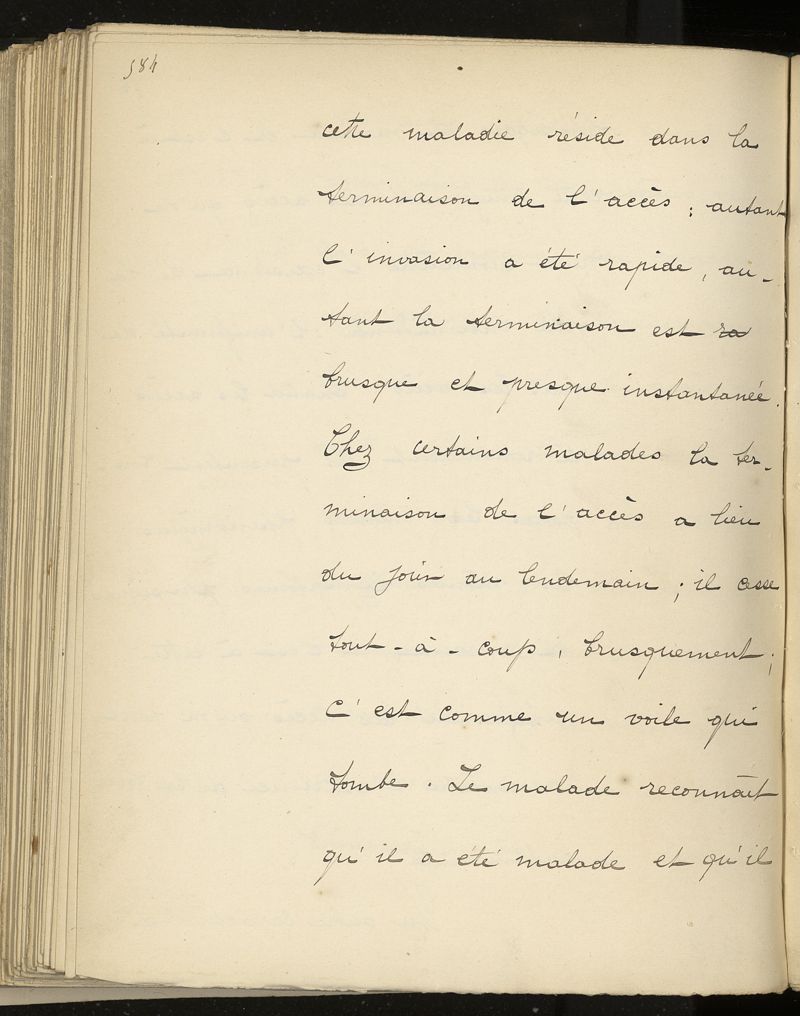 584
cette maladie réside dans la
terminaison de l'accès ; autant
l'invasion a été rapide, au-
tant la terminaison est ra
brusque et presque instantanée.
Chez certains malades la ter-
minaison de l'accès a lieu
du jour au lendemain ; il cesse
tout-à-coup, brusquement ;
c'est comme un voile qui
tombe. Le malade reconnaît
qu'il a été malade et qu'il